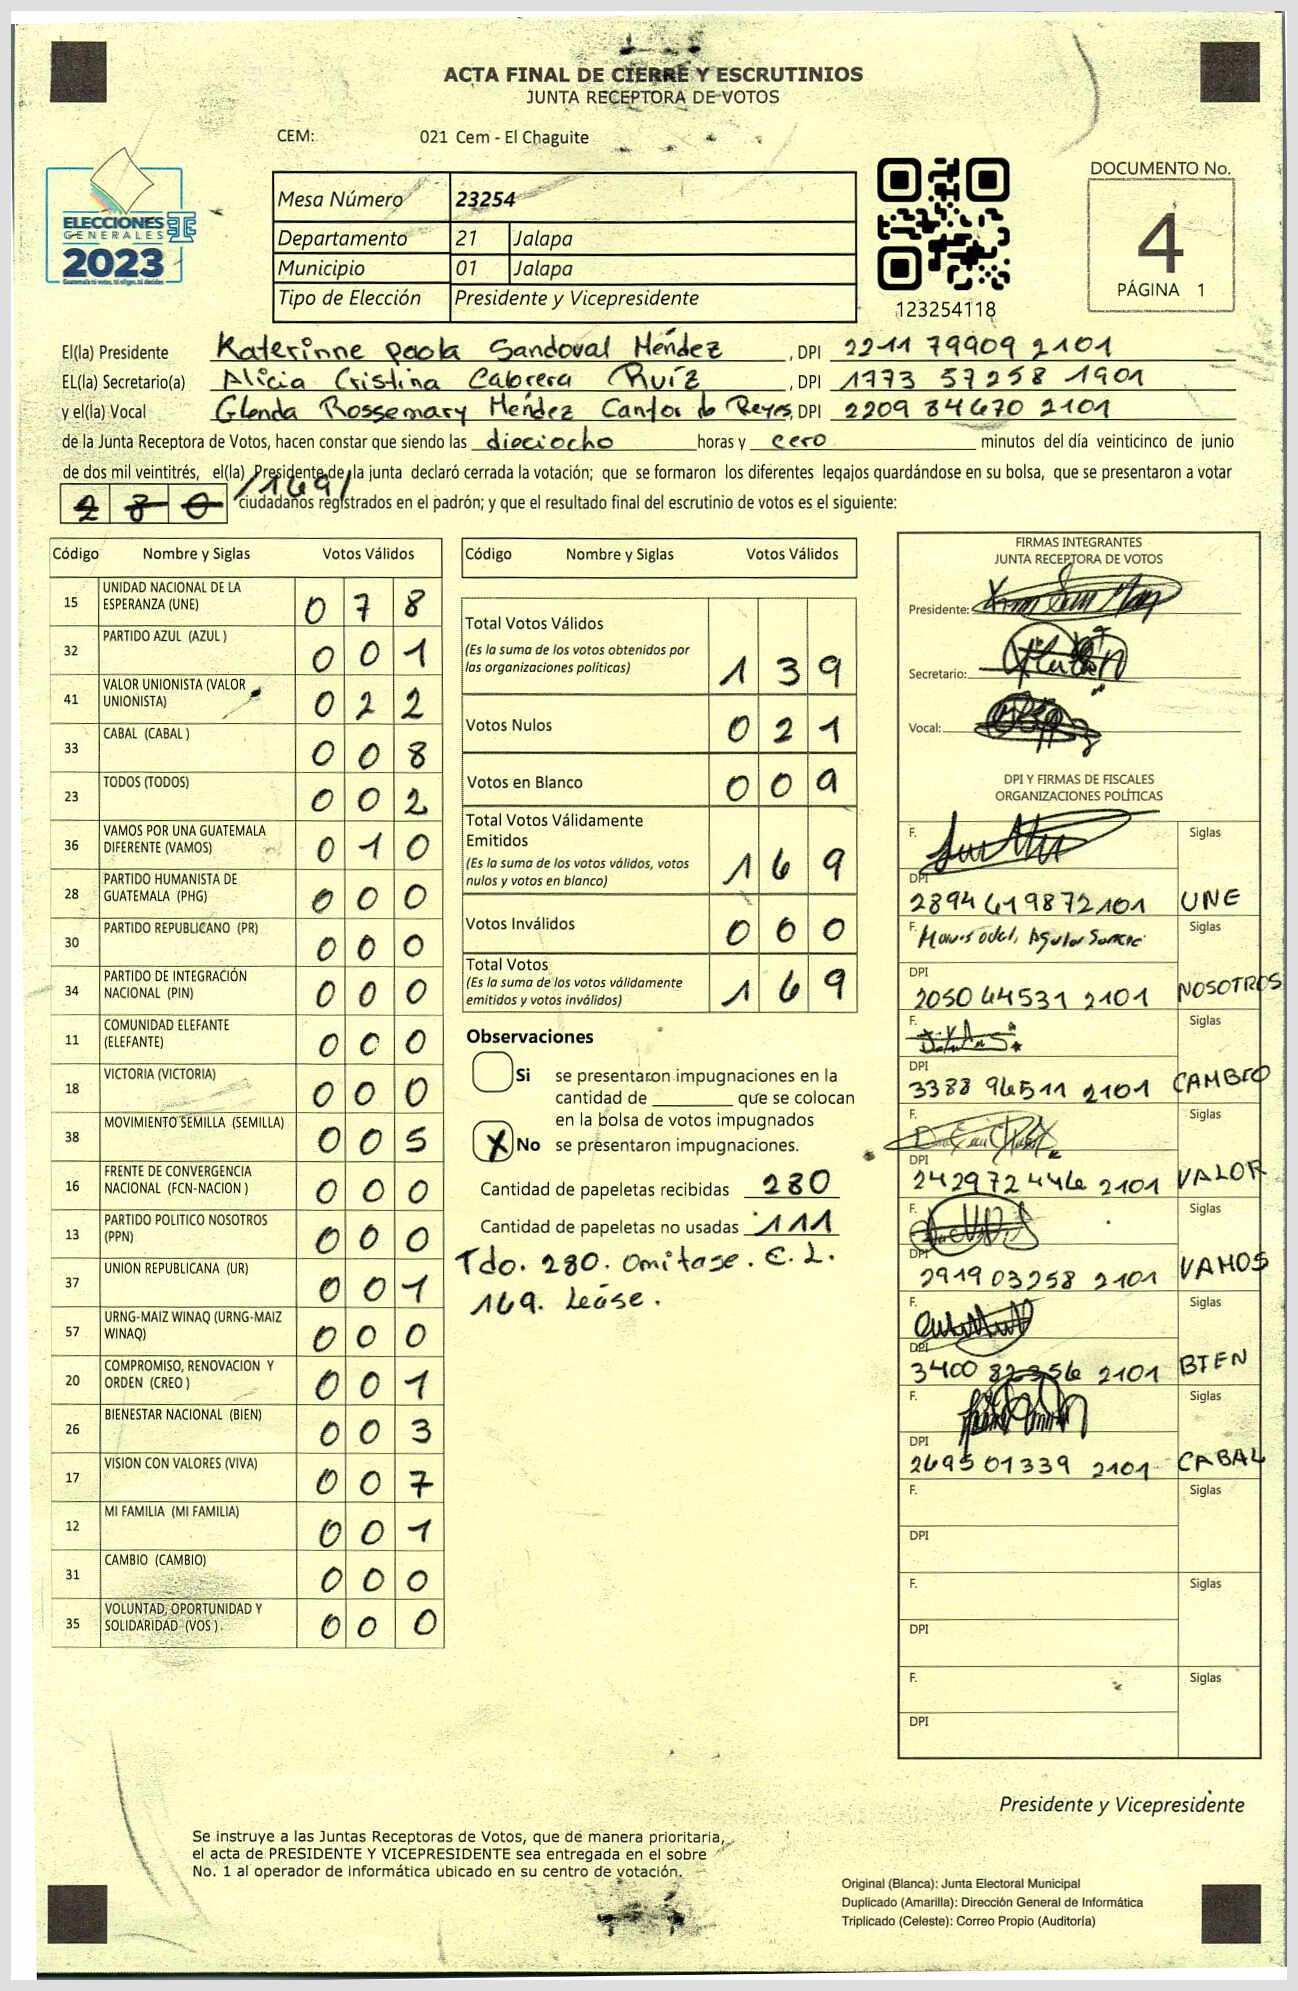 ACTA FINAL DE CIERRE Y ESCRUTINIOS
JUNTA RECEPTORA DE VOTOS
CEM: 021 Cem - El Chaguite
ELECCIONES
GENERALES
2023
Guatemala tú votas, tú eliges, tú decides
Mesa Número 23254
Departamento 21 Jalapa
Municipio 01 Jalapa
Tipo de Elección Presidente y Vicepresidente
123254118
DOCUMENTO No.
4
PÁGINA 1
El(la) Presidente Katerinne paola Sandoval Méndez, DPI 2211 79909 2101
EL(la) Secretario(a) Alicia Cristina Cabrera Ruíz, DPI 1773 57258 1901
y el(la) Vocal Glenda Rossemary Méndez Cantor de Reyes, DPI 2209 84670 2101
de la Junta Receptora de Votos, hacen constar que siendo las dieciocho horas y cero minutos del día veinticinco de junio
de dos mil veintitrés, el(la) Presidente de la junta declaró cerrada la votación; que se formaron los diferentes legajos guardándose en su bolsa, que se presentaron a votar
280 /169/ ciudadanos registrados en el padrón; y que el resultado final del escrutinio de votos es el siguiente:
Código Nombre y Siglas Votos Válidos
15 UNIDAD NACIONAL DE LA ESPERANZA (UNE) 0 7 8
32 PARTIDO AZUL (AZUL ) 0 0 1
41 VALOR UNIONISTA (VALOR UNIONISTA) 0 2 2
33 CABAL (CABAL ) 0 0 8
23 TODOS (TODOS) 0 0 2
36 VAMOS POR UNA GUATEMALA DIFERENTE (VAMOS) 0 1 0
28 PARTIDO HUMANISTA DE GUATEMALA (PHG) 0 0 0
30 PARTIDO REPUBLICANO (PR) 0 0 0
34 PARTIDO DE INTEGRACIÓN NACIONAL (PIN) 0 0 0
11 COMUNIDAD ELEFANTE (ELEFANTE) 0 0 0
18 VICTORIA (VICTORIA) 0 0 0
38 MOVIMIENTO SEMILLA (SEMILLA) 0 0 5
16 FRENTE DE CONVERGENCIA NACIONAL (FCN-NACION ) 0 0 0
13 PARTIDO POLITICO NOSOTROS (PPN) 0 0 0
37 UNION REPUBLICANA (UR) 0 0 1
57 URNG-MAIZ WINAQ (URNG-MAIZ WINAQ) 0 0 0
20 COMPROMISO, RENOVACION Y ORDEN (CREO ) 0 0 1
26 BIENESTAR NACIONAL (BIEN) 0 0 3
17 VISION CON VALORES (VIVA) 0 0 7
12 MI FAMILIA (MI FAMILIA) 0 0 1
31 CAMBIO (CAMBIO) 0 0 0
35 VOLUNTAD, OPORTUNIDAD Y SOLIDARIDAD (VOS ) 0 0 0
Código Nombre y Siglas Votos Válidos
Total Votos Válidos 1 3 9
(Es la suma de los votos obtenidos por
las organizaciones políticas)
Votos Nulos 0 2 1
Votos en Blanco 0 0 9
Total Votos Válidamente
Emitidos 1 6 9
(Es la suma de los votos válidos, votos
nulos y votos en blanco)
Votos Inválidos 0 0 0
Total Votos 1 6 9
(Es la suma de los votos válidamente
emitidos y votos inválidos)
Observaciones
Si se presentaron impugnaciones en la
cantidad de ________ que se colocan
en la bolsa de votos impugnados
X No se presentaron impugnaciones.
Cantidad de papeletas recibidas 280
Cantidad de papeletas no usadas 111
Tdo. 280. Omitase. E. L.
169. Léase.
FIRMAS INTEGRANTES
JUNTA RECEPTORA DE VOTOS
Presidente:
Secretario:
Vocal:
DPI Y FIRMAS DE FISCALES
ORGANIZACIONES POLÍTICAS
F. Siglas
DPI
2894 61987 2101 UNE
F. Siglas
DPI
2050 64531 2101 NOSOTROS
F. Siglas
DPI
3388 96511 2101 CAMBIO
F. Siglas
DPI
2429 72446 2101 VALOR
F. Siglas
DPI
2919 03258 2101 VAMOS
F. Siglas
DPI
3400 82356 2101 BIEN
F. Siglas
DPI
2695 01339 2101 CABAL
F. Siglas
DPI
F. Siglas
DPI
F. Siglas
DPI
Presidente y Vicepresidente
Se instruye a las Juntas Receptoras de Votos, que de manera prioritaria,
el acta de PRESIDENTE Y VICEPRESIDENTE sea entregada en el sobre
No. 1 al operador de informática ubicado en su centro de votación.
Original (Blanca): Junta Electoral Municipal
Duplicado (Amarilla): Dirección General de Informática
Triplicado (Celeste): Correo Propio (Auditoría)